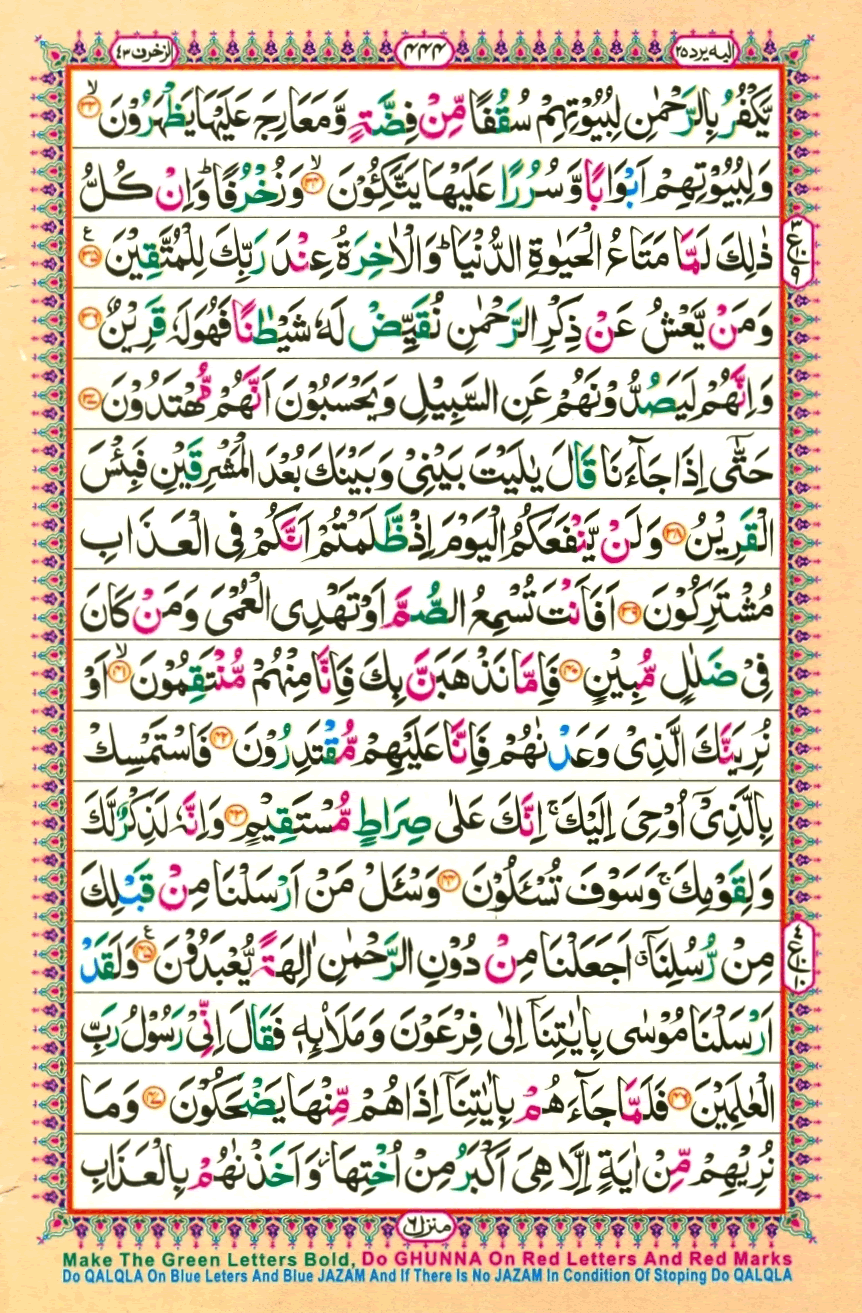 الزخرف ٤٣
٤٤٤
الیه یرد ٢٥
یَّكْفُرُ بِالرَّحْمٰنِ لِبُیُوْتِهِمْ سُقُفًا مِّنْ فِضَّةٍ وَّ مَعَارِجَ عَلَیْهَا یَظْهَرُوْنَ ۙ‏﴿۳۳﴾
وَ لِبُیُوْتِهِمْ اَبْوَابًا وَّ سُرُرًا عَلَیْهَا یَتَّكِئُوْنَ ۙ‏﴿۳۴﴾ وَ زُخْرُفًا ؕ وَ اِنْ كُلُّ
ذٰلِكَ لَمَّا مَتَاعُ الْحَیٰوةِ الدُّنْیَا ؕ وَ الْاٰخِرَةُ عِنْدَ رَبِّكَ لِلْمُتَّقِیْنَ ﴿۳۵﴾ ع
وَ مَنْ یَّعْشُ عَنْ ذِكْرِ الرَّحْمٰنِ نُقَیِّضْ لَهٗ شَیْطٰنًا فَهُوَ لَهٗ قَرِیْنٌ ﴿۳۶﴾
وَ اِنَّهُمْ لَیَصُدُّوْنَهُمْ عَنِ السَّبِیْلِ وَ یَحْسَبُوْنَ اَنَّهُمْ مُّهْتَدُوْنَ ﴿۳۷﴾
حَتّٰۤی اِذَا جَآءَنَا قَالَ یٰلَیْتَ بَیْنِیْ وَ بَیْنَكَ بُعْدَ الْمَشْرِقَیْنِ فَبِئْسَ
الْقَرِیْنُ ﴿۳۸﴾ وَ لَنْ یَّنْفَعَكُمُ الْیَوْمَ اِذْ ظَّلَمْتُمْ اَنَّكُمْ فِی الْعَذَابِ
مُشْتَرِكُوْنَ ﴿۳۹﴾ اَفَاَنْتَ تُسْمِعُ الصُّمَّ اَوْ تَهْدِی الْعُمْیَ وَ مَنْ كَانَ
فِیْ ضَلٰلٍ مُّبِیْنٍ ﴿۴۰﴾ فَاِمَّا نَذْهَبَنَّ بِكَ فَاِنَّا مِنْهُمْ مُّنْتَقِمُوْنَ ۙ‏﴿۴۱﴾ اَوْ
نُرِیَنَّكَ الَّذِیْ وَعَدْنٰهُمْ فَاِنَّا عَلَیْهِمْ مُّقْتَدِرُوْنَ ﴿۴۲﴾ فَاسْتَمْسِكْ
بِالَّذِیْۤ اُوْحِیَ اِلَیْكَ ۚ اِنَّكَ عَلٰی صِرَاطٍ مُّسْتَقِیْمٍ ﴿۴۳﴾ وَ اِنَّهٗ لَذِكْرٌ لَّكَ
وَ لِقَوْمِكَ ۚ وَ سَوْفَ تُسْـَٔلُوْنَ ﴿۴۴﴾ وَ سْـَٔلْ مَنْ اَرْسَلْنَا مِنْ قَبْلِكَ
مِنْ رُّسُلِنَاۤ ۗ اَجَعَلْنَا مِنْ دُوْنِ الرَّحْمٰنِ اٰلِهَةً یُّعْبَدُوْنَ ﴿۴۵﴾ ع وَ لَقَدْ
اَرْسَلْنَا مُوْسٰی بِاٰیٰتِنَاۤ اِلٰی فِرْعَوْنَ وَ مَلَاۡىِٕهٖ فَقَالَ اِنِّیْ رَسُوْلُ رَبِّ
الْعٰلَمِیْنَ ﴿۴۶﴾ فَلَمَّا جَآءَهُمْ بِاٰیٰتِنَاۤ اِذَا هُمْ مِّنْهَا یَضْحَكُوْنَ ﴿۴۷﴾ وَ مَا
نُرِیْهِمْ مِّنْ اٰیَةٍ اِلَّا هِیَ اَكْبَرُ مِنْ اُخْتِهَا ؗ وَ اَخَذْنٰهُمْ بِالْعَذَابِ
منزل ٦
Make The Green Letters Bold, Do GHUNNA On Red Letters And Red Marks
Do QALQLA On Blue Leters And Blue JAZAM And If There Is No JAZAM In Condition Of Stoping Do QALQLA